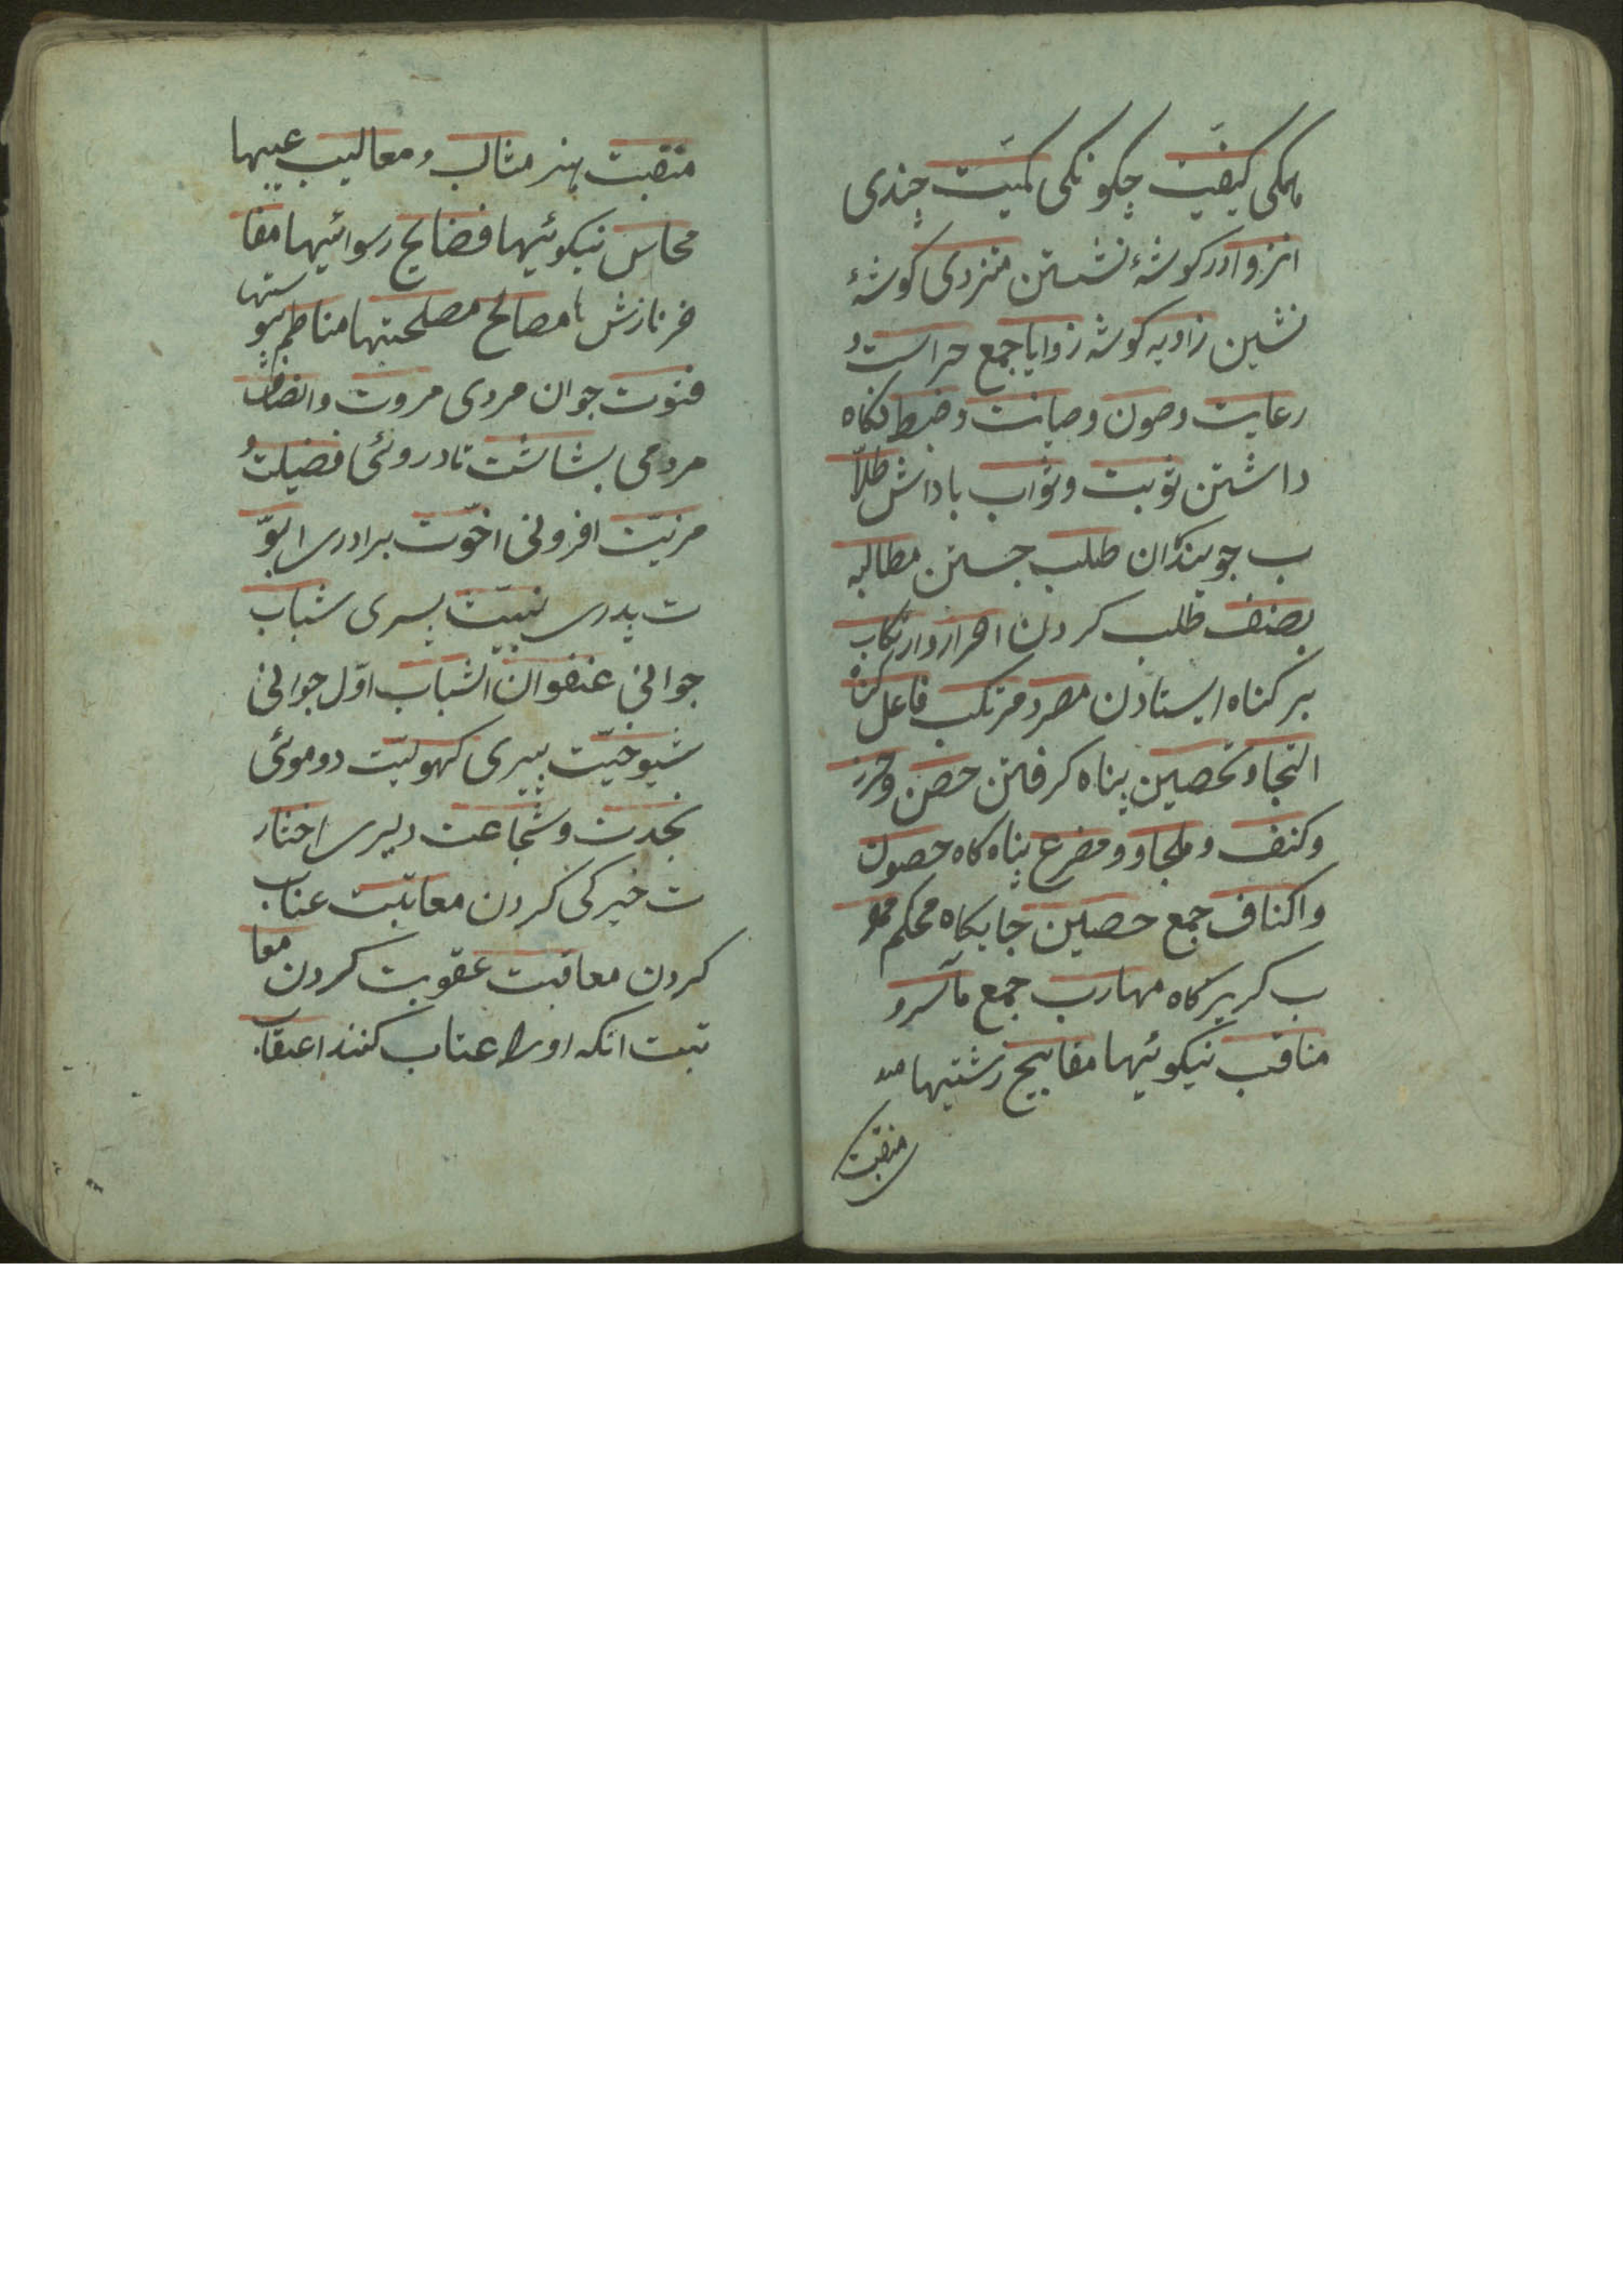 همکی کیفیت چکونکی کمیّت چندی
انزوا در کوشهٔ نشستن منزوی کوشهٔ
نشین زاویه کوشه زوایا جمع حراست و
رعایت وصون وصیانت وضبط نکاه
داشتن توبت وثواب باداش طلّا
ب جویندکان طلب جستن مطالبه
بصنف طلب کردن اصرار وارتکاب
بر کناه ایستادن مصر ومرتکب فاعل کناه
التجا وتحصین پناه کرفتن حصن وحرز
وکنف وملجاو ومفرع پناه کاه حصون
واکناف جمع حصین جایکاه محکم مهر
ب کریزکاه مهارب جمع مآسرو
مناقب نیکوئیها مقابیح زشتیها
منقبت
منقبت هنر مثالب ومعالیب عیبها
محاسن نیکوئیها فضایح رسوائیها مفا
خر نازش ها مصالح مصلحتها مناظم پیو
ستها
فتوت جوان مردی مروت وانصاف
مردمی بشاشت تادروئی فضیلت و
مزیّت افزونی اخوّت برادری ابوّ
ت پدری نبیّت پسری شباب
جوانی عنفوان الشباب اوّل جوانی
شیوخیّت پیری کهولیّت دوموئی
نجدت وشجاعت دلیری اختار
ت خیرکی کردن معاتبت عتاب
کردن معاقبت عقوبت کردن معا
تبت انکه اورا عتاب کنند اعقاب